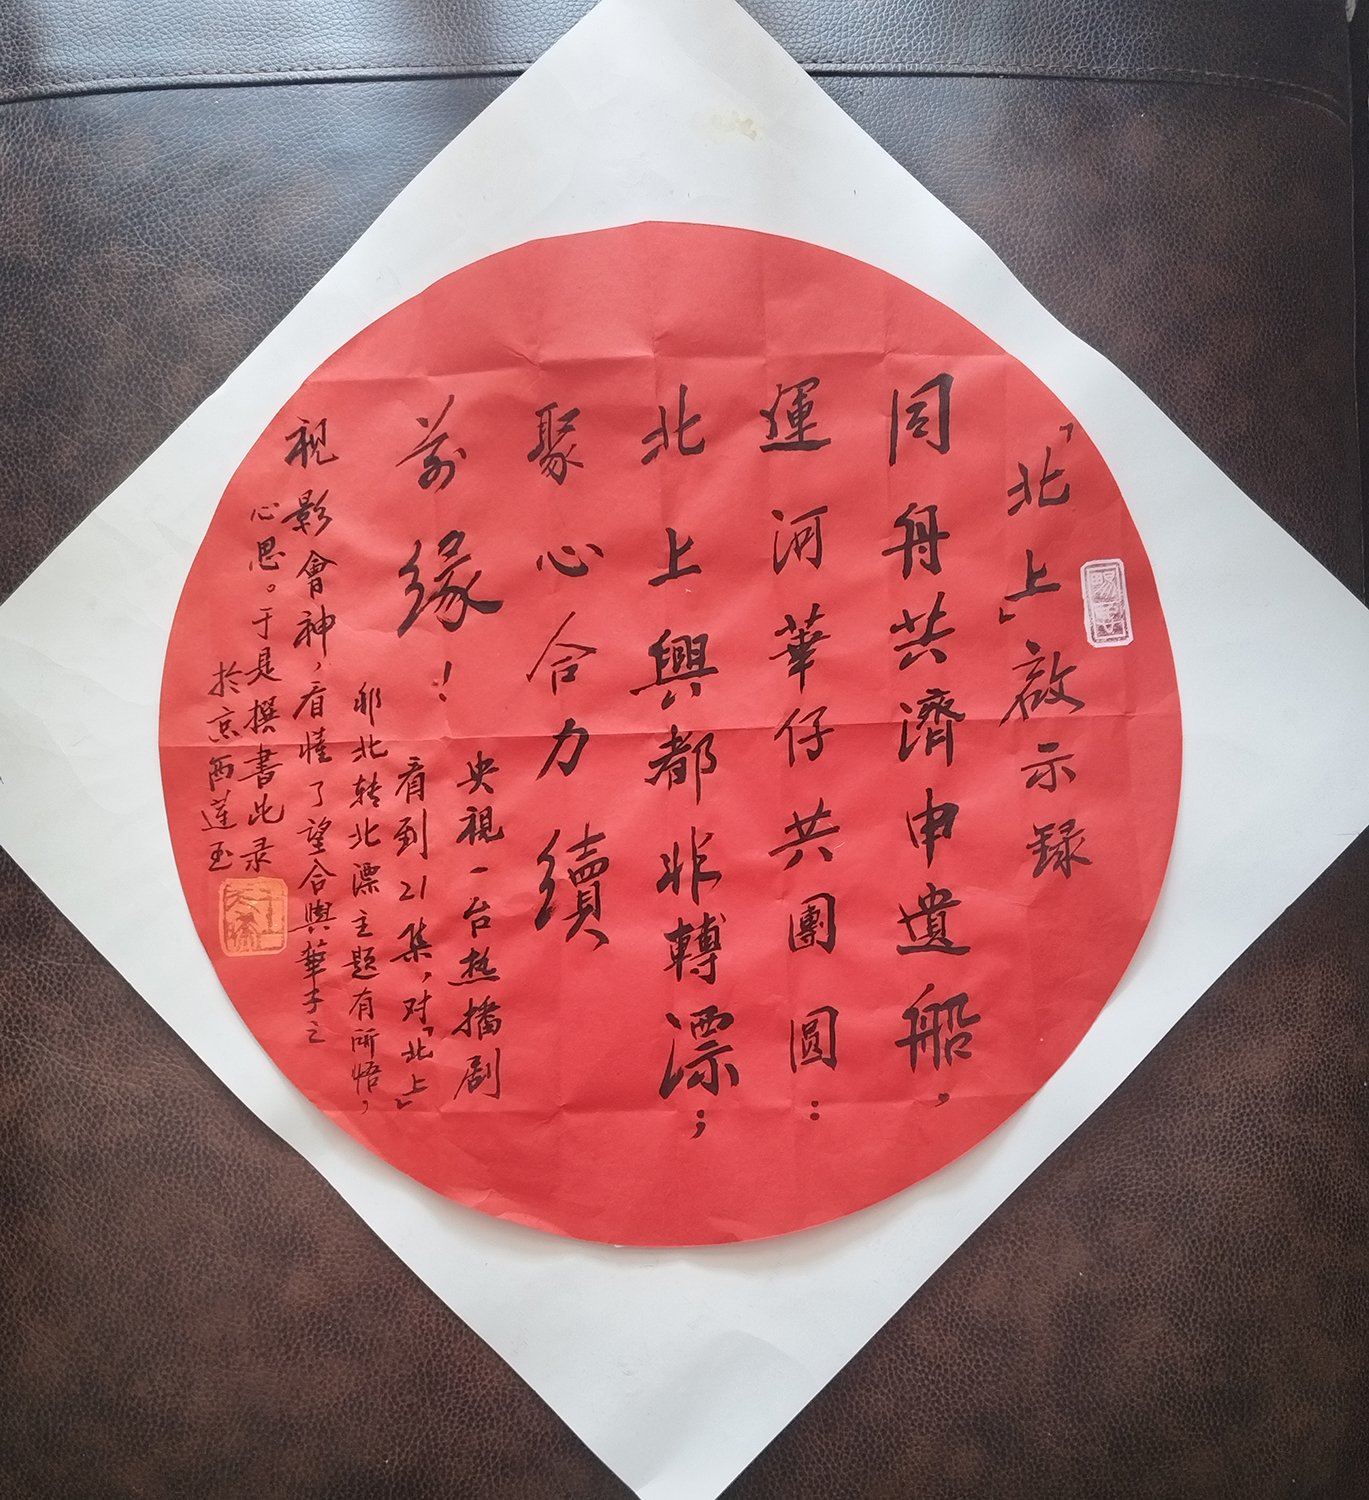 「北上」啟示録
同舟共濟申遺船，
運河華仔共團圓：
北上興都非轉漂；
聚心合力續
前緣！
央視一台热播剧
看到21集，对「北上」
非北转北漂主题有所悟，
視影會神，看懂了望合與華子之
心思。于是撰書此录
於京西蓮玉